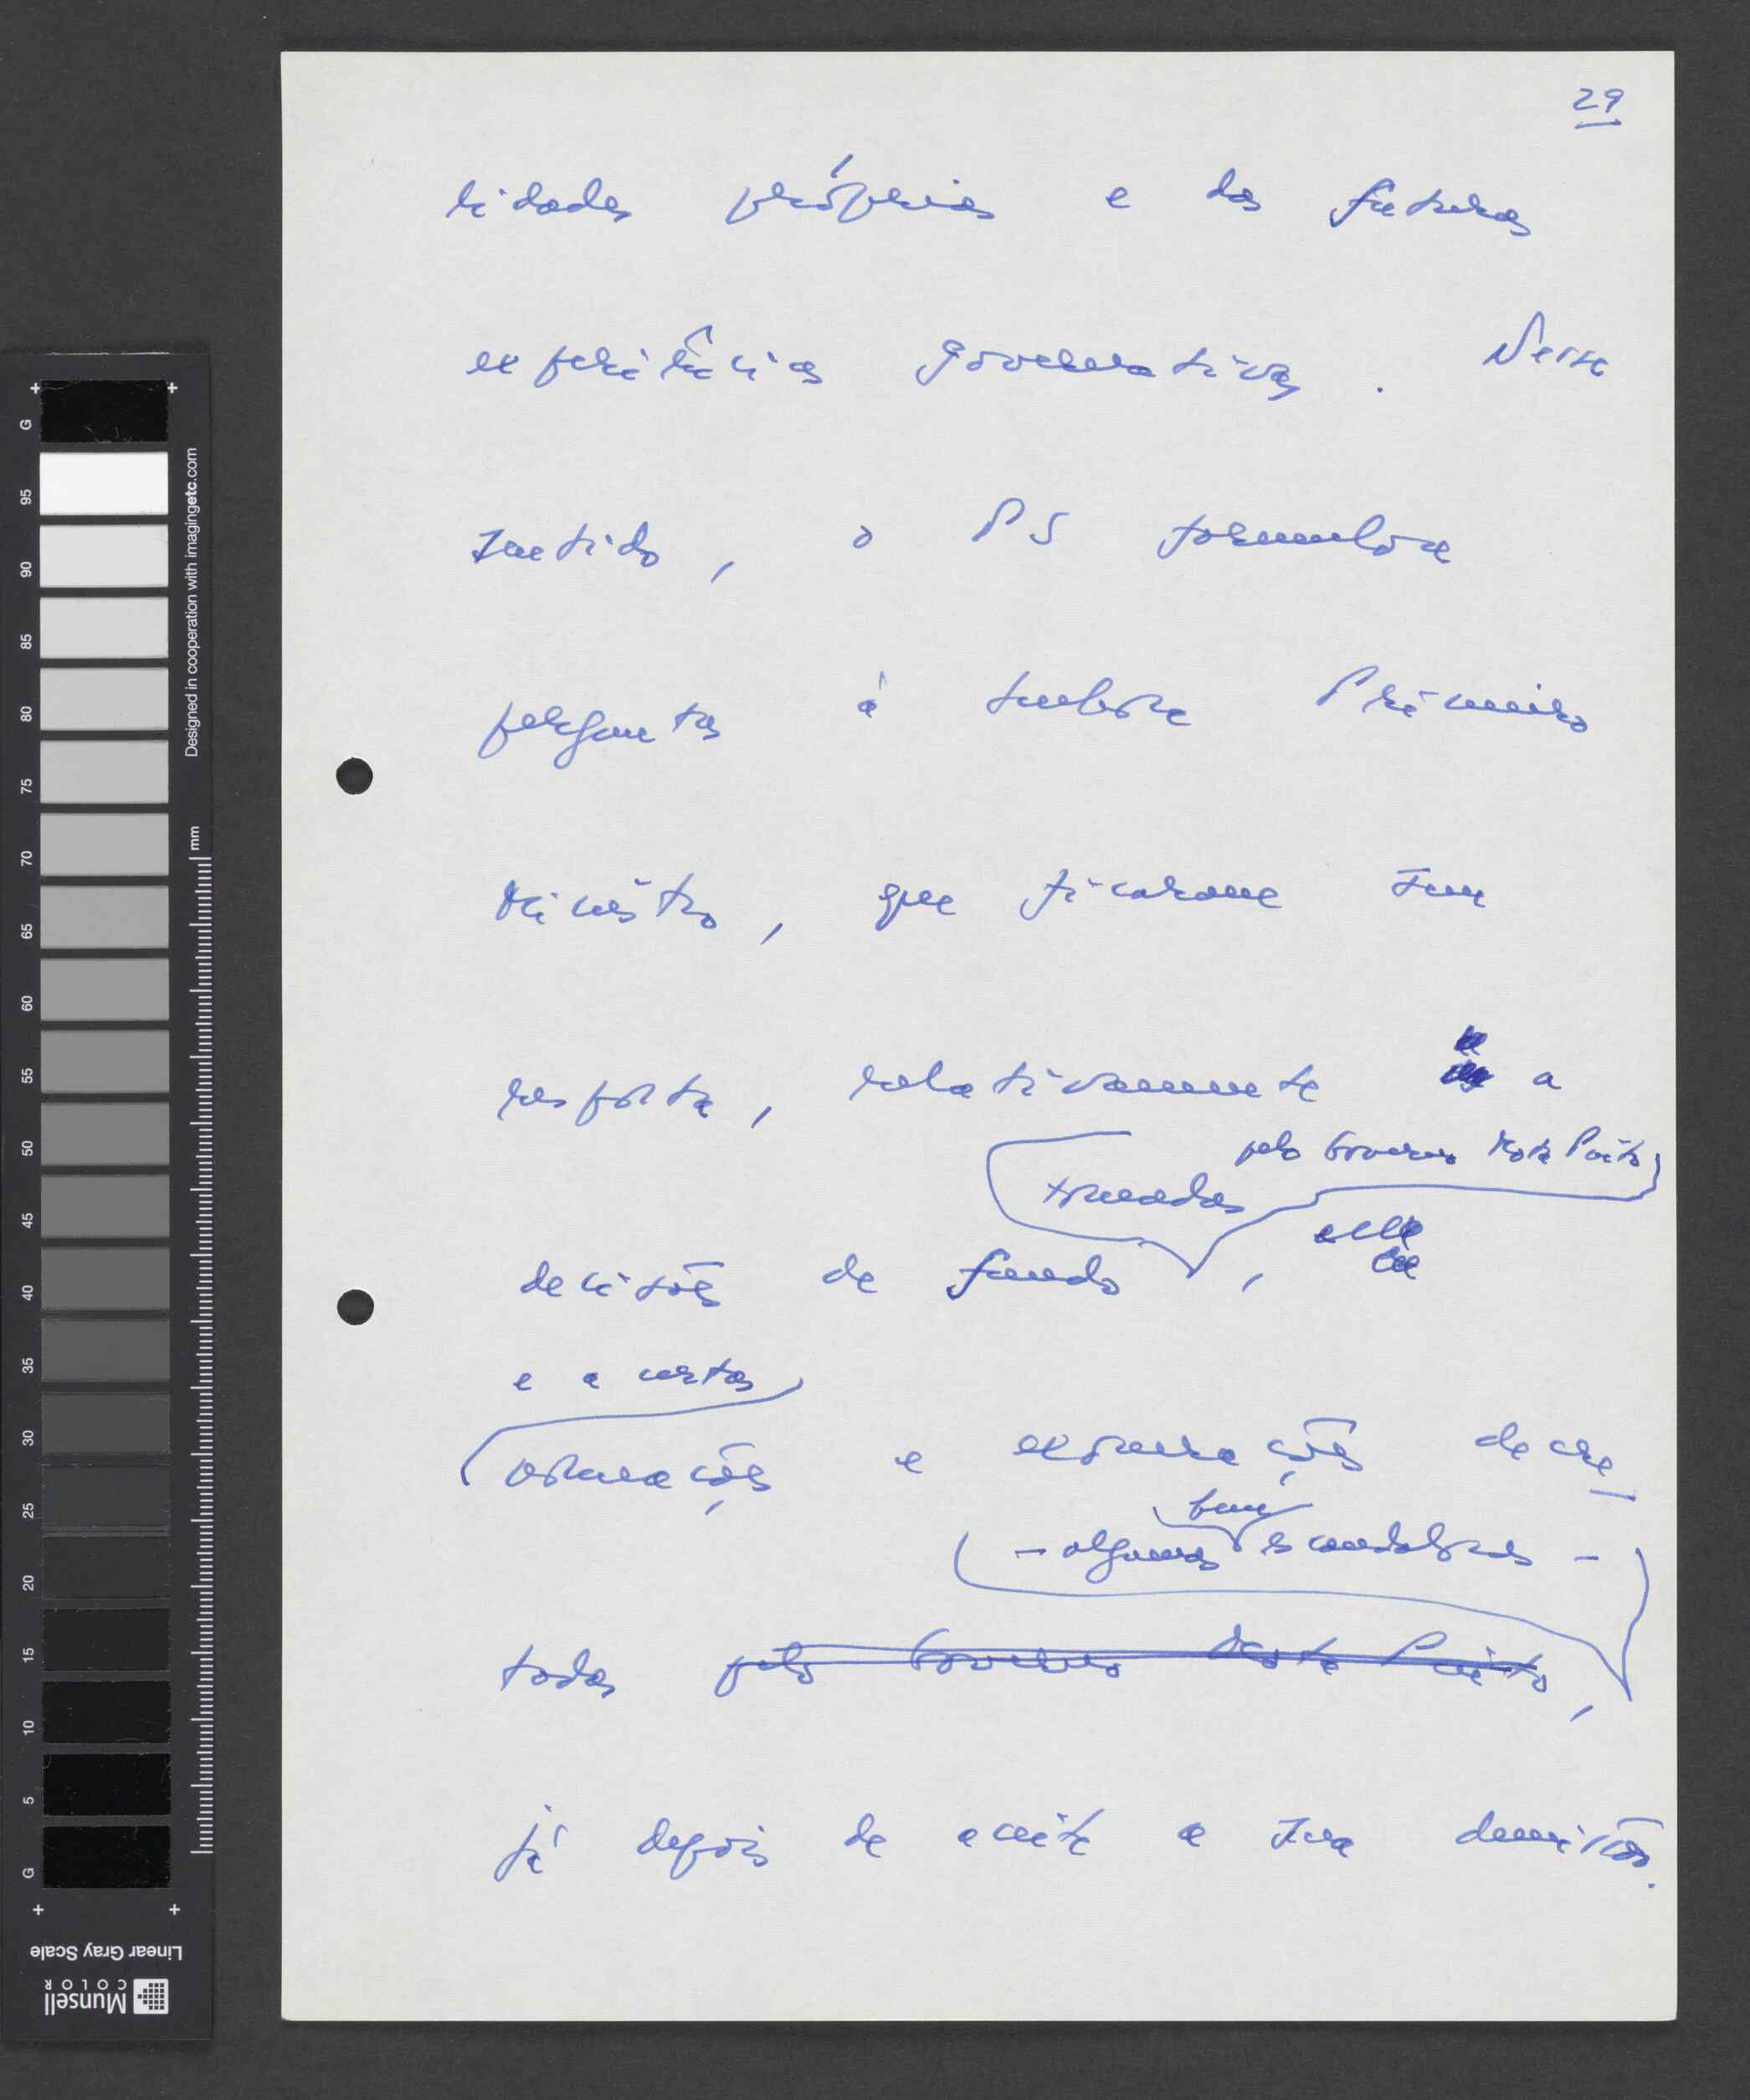 29
lidades próprias e das futuras
experiências governativas. Nesse
sentido, o PS formulou
perguntas à senhora Primeiro
Ministro, que ficaram sem
resposta, relativamente a
pelo Governo Mota Pinto
tomadas
decisões de fundo,
e a certas
nomeações e exonerações decre_
bem
- algumas escandalosas -
tadas pelo Governo Mota Pinto,
já depois de aceite a sua demissão.
Designed in cooperation with imagingetc.com
mm
G 95 90 85 80 75 70 65 60 55 50 45 40 35 30 25 20 15 10 5 G
Linear Gray Scale
Munsell
COLOR